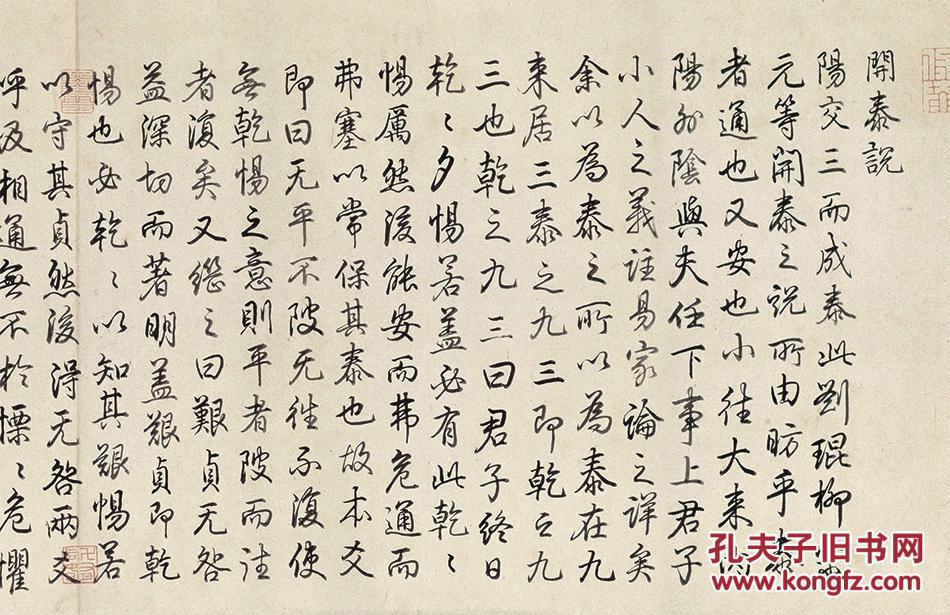 開泰說
陽交三而成泰此劉琨柳
元等開泰之說所由昉乎
者通也又安也小往大來
陽外陰與夫任下事上君子
小人之義註易家論之詳矣
余以為泰之所以為泰在九
三也乾之九三曰君子終日
来居三泰之九三即乾之九
乾〻夕惕若蓋必有此乾〻
惕厲然後能安而弗危通而
弗塞以常保其泰也故本爻
即曰无平不陂无往不復使
無乾惕之意則平者陂而往
者復矣又繼之曰艱貞无咎
益深切而著明蓋艱貞即乾
惕也必乾〻以知其艱惕若
以守其貞然後得无咎兩爻
呼汲相通無不於慄〻危懼
孔夫子旧书网
www.kongfz.com